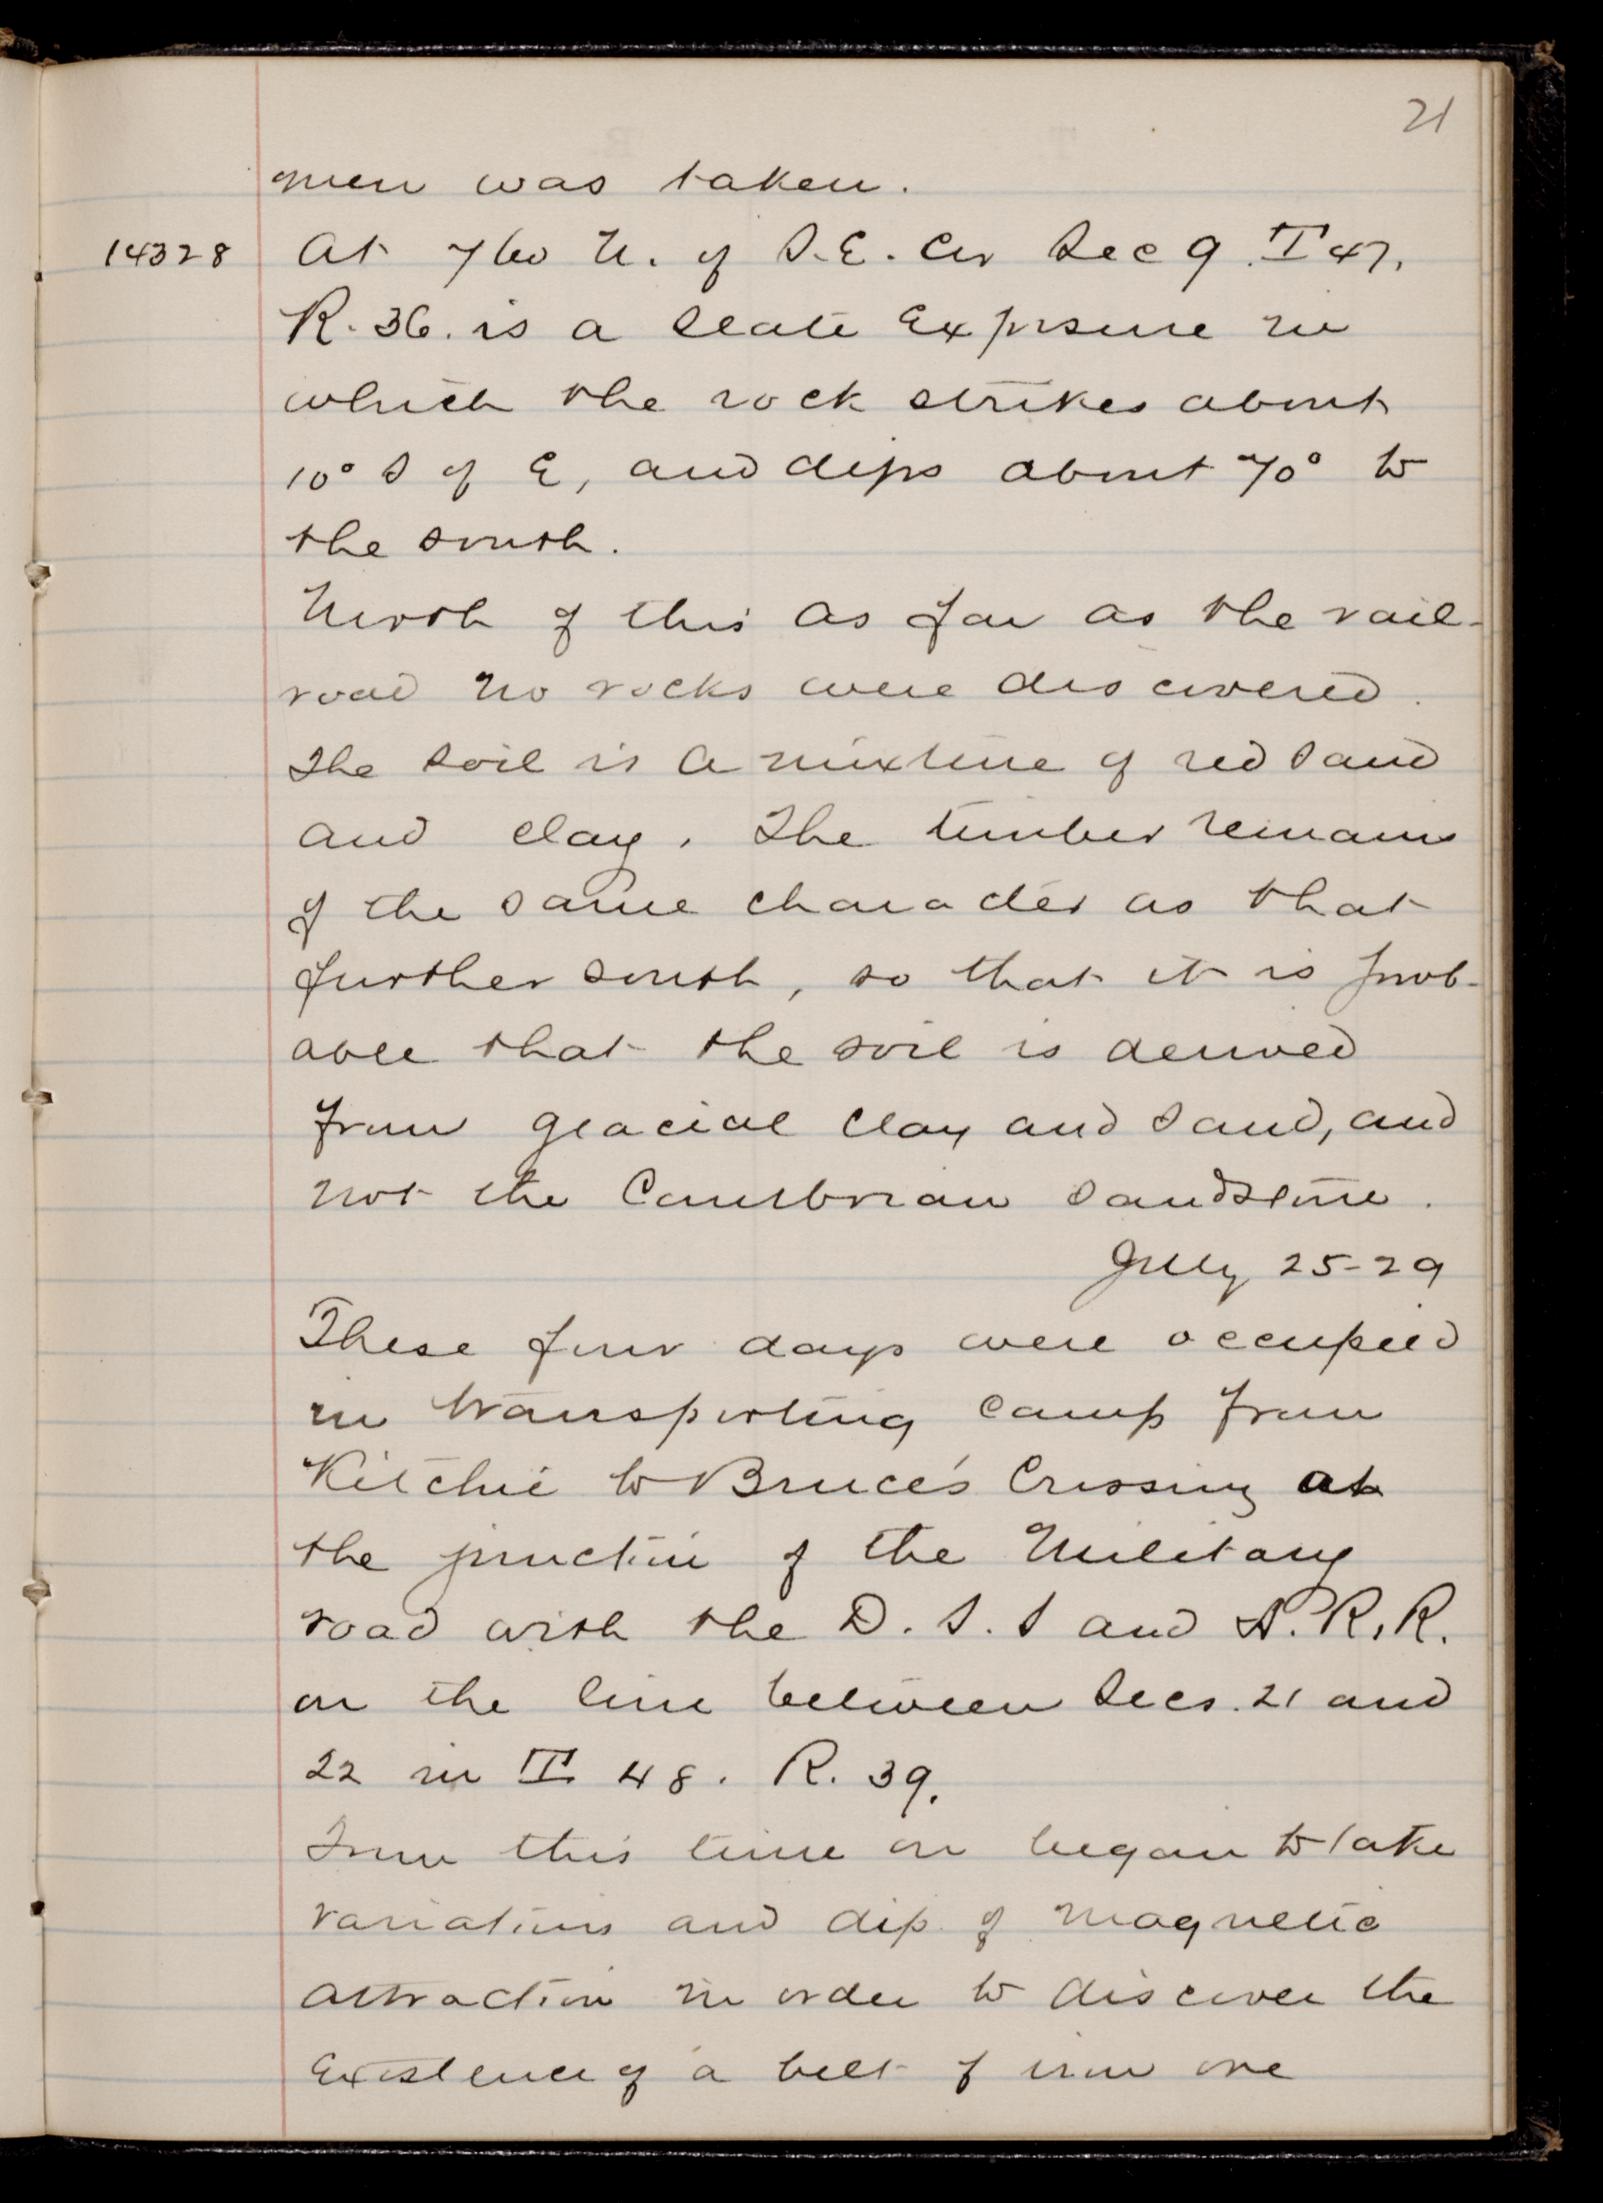 21
men was taken.
14328 At 760 N. of S.E. Cor Sec 9. T 47.
R. 36. is a slate Exposure in
which the rock strikes about
10° S of E, and dips about 70° to
the south.
North of this as far as the rail-
road no rocks were discovered.
The soil is a mixture of red sand
and clay. The timber remains
of the same character as that
further south, so that it is prob-
able that the soil is derived
from glacial clay and sand, and
not the Cambrian sandstone.
July 25-29
These four days were occupied
in transporting camp from
Kitchie to Bruce's Crossing at
the junction of the Military
road with the D. S. S and A. R. R.
on the line between Secs. 21 and
22 in T 48. R. 39.
From this time on began to take
variations and dip of magnetic
attraction in order to discover the
Existence of a belt of iron ore